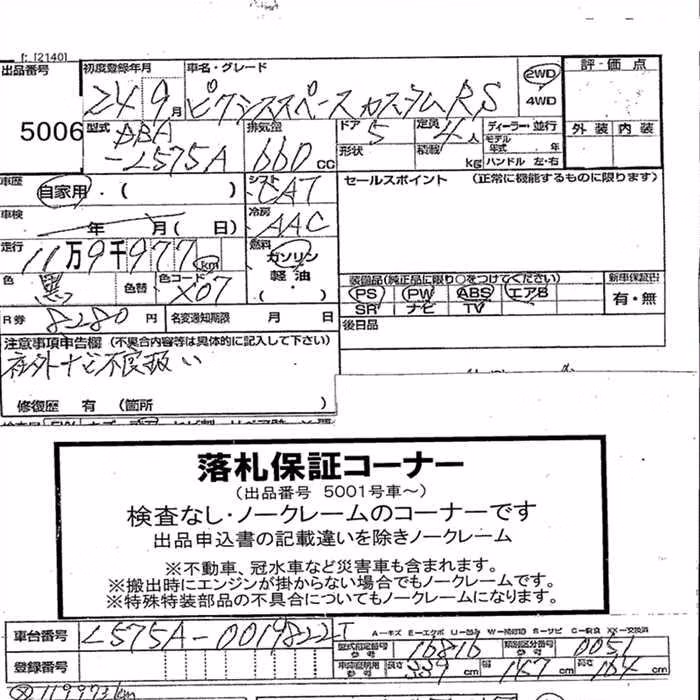 [2140]
出品番号 初度登録年月 車名・グレード 2WD 評・価 点
24 9月 ピクシススペース カスタム RS 4WD
5006 型式 DBA 排気量 ドア 5 定員 4人 ディーラー・並行 外装 内装
-L575A 660cc 形状 積載 kg モデル年式 年 ハンドル 左・右
車歴 自家用・( ) シフト CAT セールスポイント (正常に機能するものに限ります)
車検 年 月( 日) 冷房 AAC
走行 11万9千977km 燃料 ガソリン
色 黒 色替 色コード X07 軽・油 ( ) 装備品(純正品に限り○をつけてください) 新車保証書
PS PW ABS エアB 有・無
SR ナビ TV
R券 8280円 名変通知期限 月 日 後日品
注意事項申告欄 (不具合内容等は具体的に記入して下さい)
社外ナビ不良扱い
修復歴 有 (箇所 )
落札保証コーナー
(出品番号 5001号車～)
検査なし・ノークレームのコーナーです
出品申込書の記載違いを除きノークレーム
※不動車、冠水車など災害車も含まれます。
※搬出時にエンジンが掛からない場合でもノークレームです。
※特殊特装部品の不具合についてもノークレームになります。
車台番号 L575A-0019822 A－キズ E－エクボ U－凹み W－補修跡 S－サビ C－腐食 XX－交換済
型式指定番号 参考 16816 類別区分番号 参考 0051
登録番号 車検証明用 参考 長さ 339cm 幅 147cm 高さ 164cm
119973km